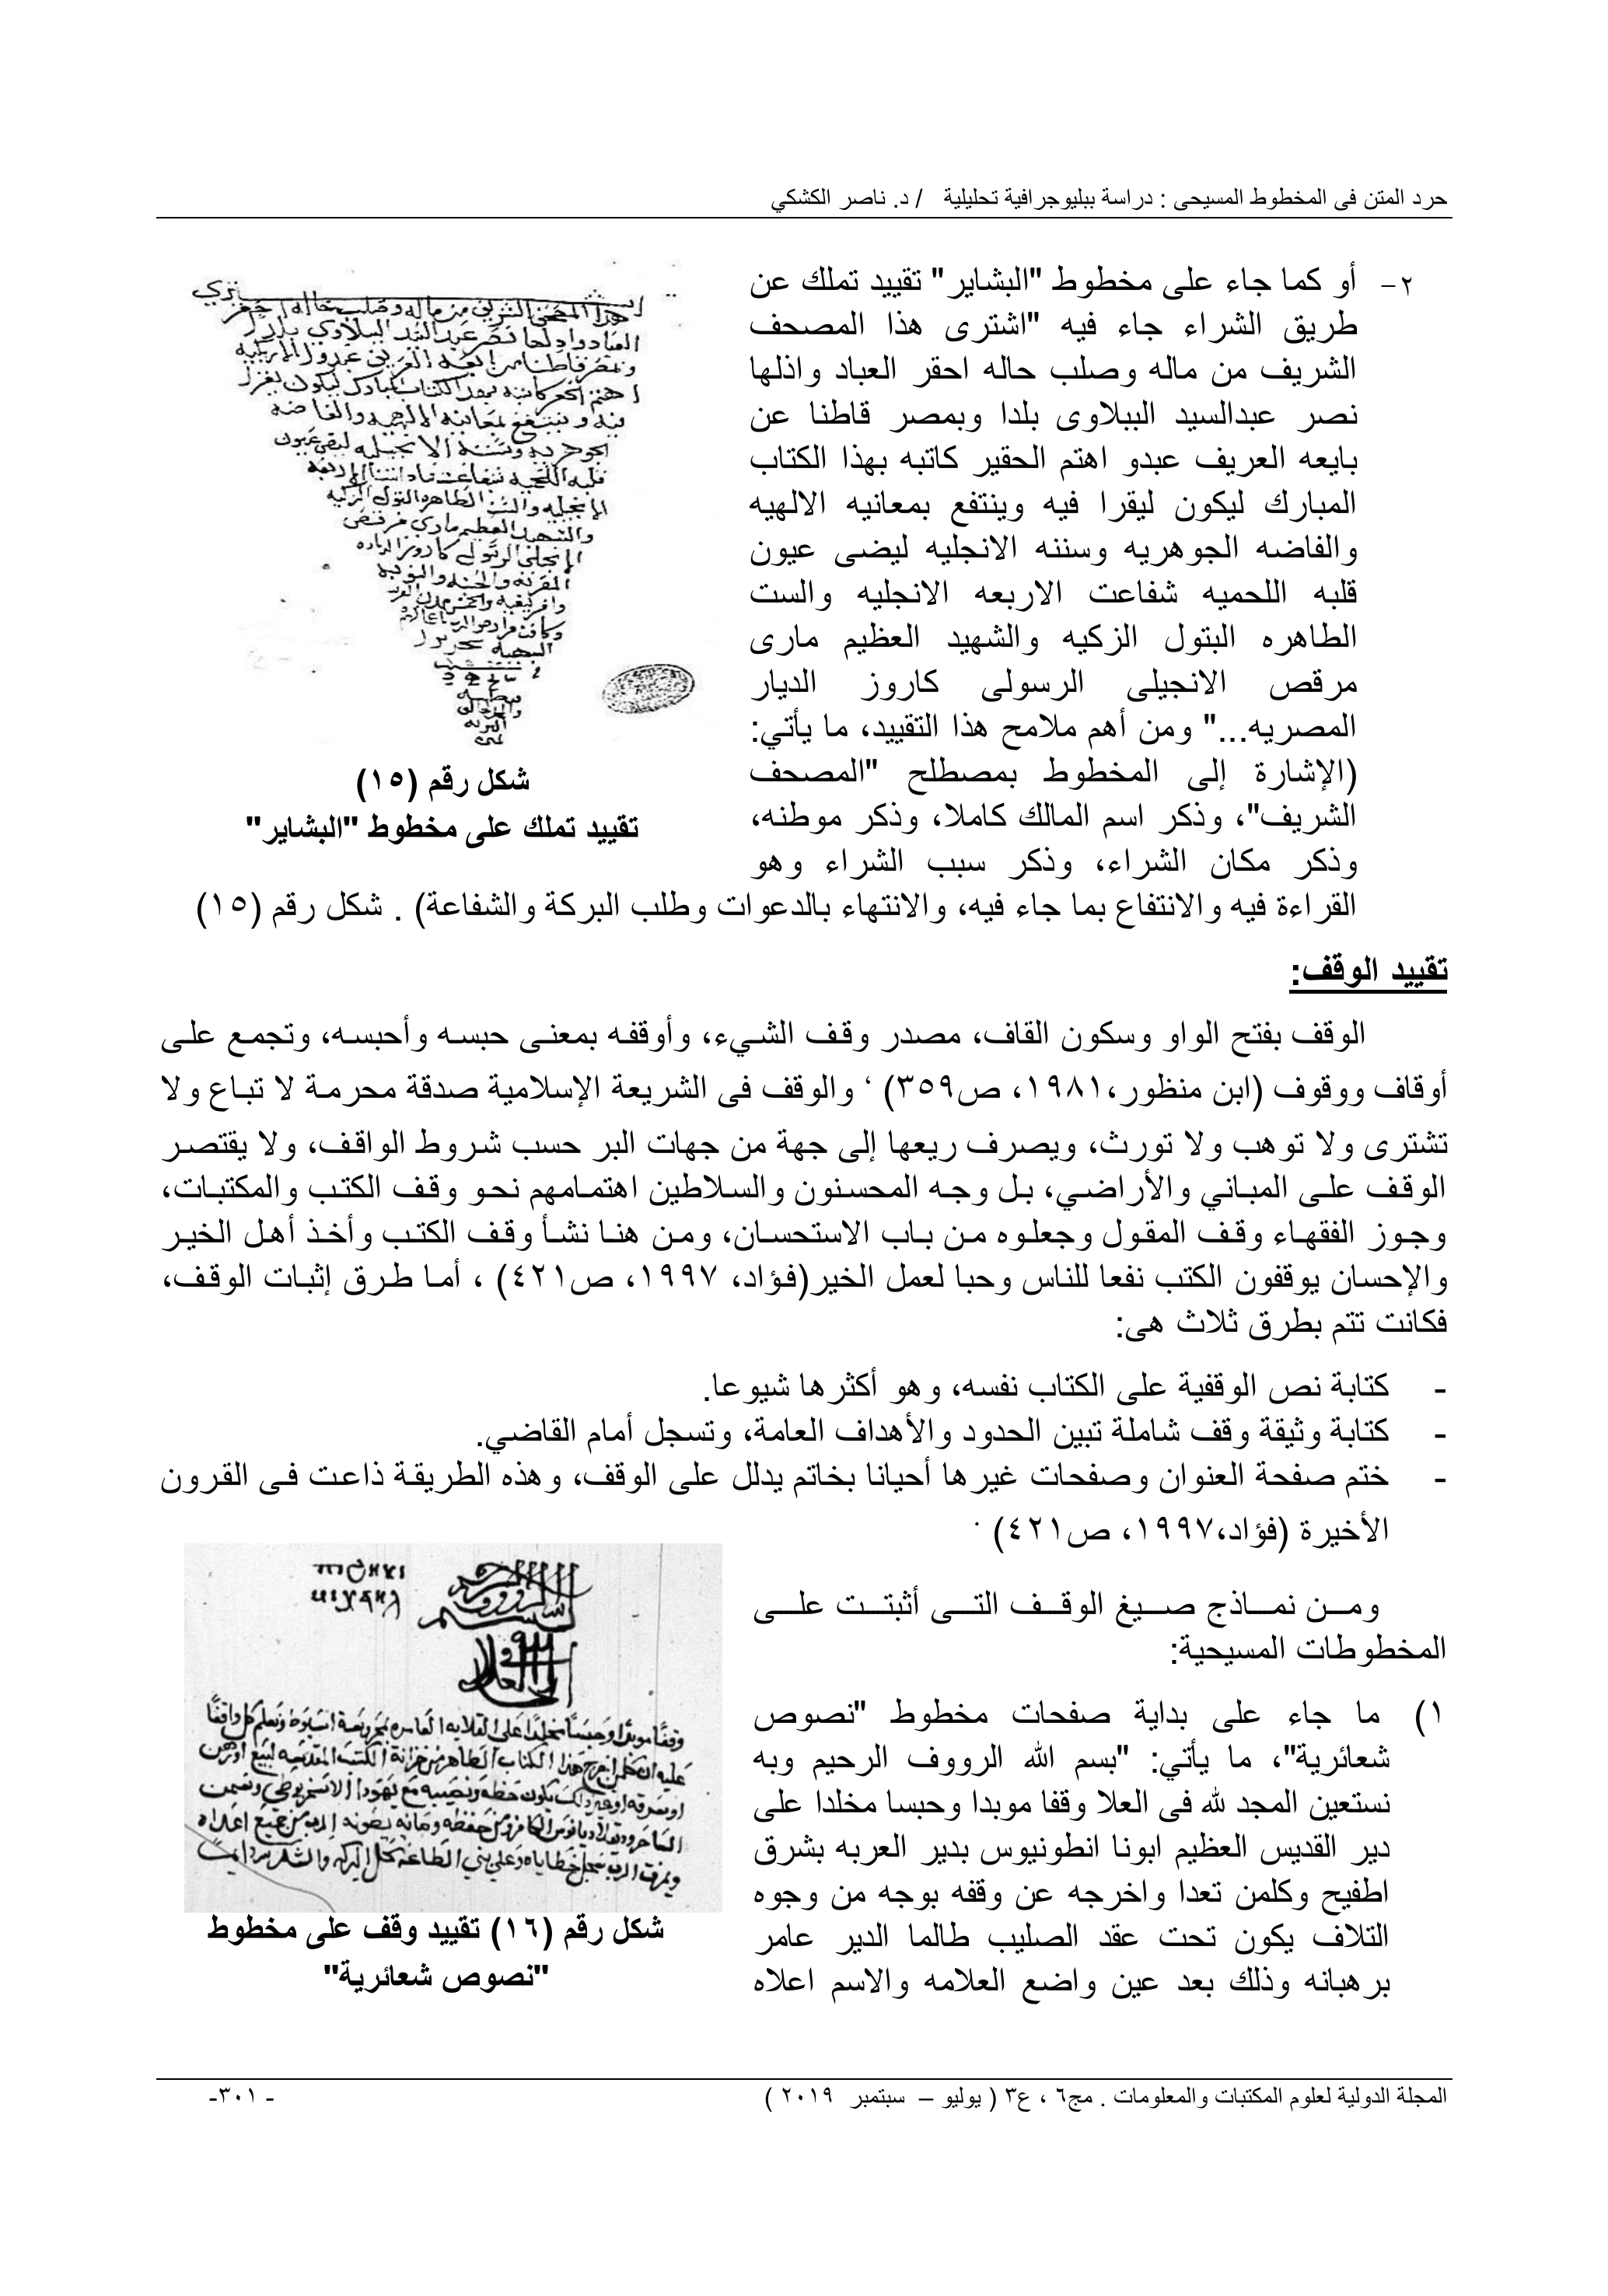 حرد المتن فى المخطوط المسيحى : دراسة ببليوجرافية تحليلية / د. ناصر الكشكي
٢- أو كما جاء على مخطوط "البشاير" تقييد تملك عن
طريق الشراء جاء فيه "اشترى هذا المصحف
الشريف من ماله وصلب حاله احقر العباد واذلها
نصر عبدالسيد الببلاوى بلدا وبمصر قاطنا عن
بايعه العريف عبدو اهتم الحقير كاتبه بهذا الكتاب
المبارك ليكون ليقرا فيه وينتفع بمعانيه الالهيه
والفاضه الجوهريه وسننه الانجليه ليضى عيون
قلبه اللحميه شفاعت الاربعه الانجليه والست
الطاهره البتول الزكيه والشهيد العظيم مارى
مرقص الانجيلى الرسولى كاروز الديار
المصريه..." ومن أهم ملامح هذا التقييد، ما يأتي:
(الإشارة إلى المخطوط بمصطلح "المصحف
الشريف"، وذكر اسم المالك كاملا، وذكر موطنه،
وذكر مكان الشراء، وذكر سبب الشراء وهو
القراءة فيه والانتفاع بما جاء فيه، والانتهاء بالدعوات وطلب البركة والشفاعة) . شكل رقم (١٥)
شكل رقم (١٥)
تقييد تملك على مخطوط "البشاير"
تقييد الوقف:
الوقف بفتح الواو وسكون القاف، مصدر وقف الشيء، وأوقفه بمعنى حبسه وأحبسه، وتجمع على
أوقاف ووقوف (ابن منظور،١٩٨١، ص٣٥٩) ، والوقف فى الشريعة الإسلامية صدقة محرمة لا تباع ولا
تشترى ولا توهب ولا تورث، ويصرف ريعها إلى جهة من جهات البر حسب شروط الواقف، ولا يقتصر
الوقف على المباني والأراضي، بل وجه المحسنون والسلاطين اهتمامهم نحو وقف الكتب والمكتبات،
وجوز الفقهاء وقف المقول وجعلوه من باب الاستحسان، ومن هنا نشأ وقف الكتب وأخذ أهل الخير
والإحسان يوقفون الكتب نفعا للناس وحبا لعمل الخير(فؤاد، ١٩٩٧، ص٤٢١) ، أما طرق إثبات الوقف،
فكانت تتم بطرق ثلاث هى:
- كتابة نص الوقفية على الكتاب نفسه، وهو أكثرها شيوعا.
- كتابة وثيقة وقف شاملة تبين الحدود والأهداف العامة، وتسجل أمام القاضي.
- ختم صفحة العنوان وصفحات غيرها أحيانا بخاتم يدلل على الوقف، وهذه الطريقة ذاعت فى القرون
الأخيرة (فؤاد،١٩٩٧، ص٤٢١) .
ومن نماذج صيغ الوقف التى أثبتت على
المخطوطات المسيحية:
١) ما جاء على بداية صفحات مخطوط "نصوص
شعائرية"، ما يأتي: "بسم الله الرووف الرحيم وبه
نستعين المجد لله فى العلا وقفا موبدا وحبسا مخلدا على
دير القديس العظيم ابونا انطونيوس بدير العربه بشرق
اطفيح وكلمن تعدا واخرجه عن وقفه بوجه من وجوه
التلاف يكون تحت عقد الصليب طالما الدير عامر
برهبانه وذلك بعد عين واضع العلامه والاسم اعلاه
شكل رقم (١٦) تقييد وقف على مخطوط
"نصوص شعائرية"
المجلة الدولية لعلوم المكتبات والمعلومات . مج٦ ، ع٣ ( يوليو – سبتمبر ٢٠١٩ )
- ٣٠١-